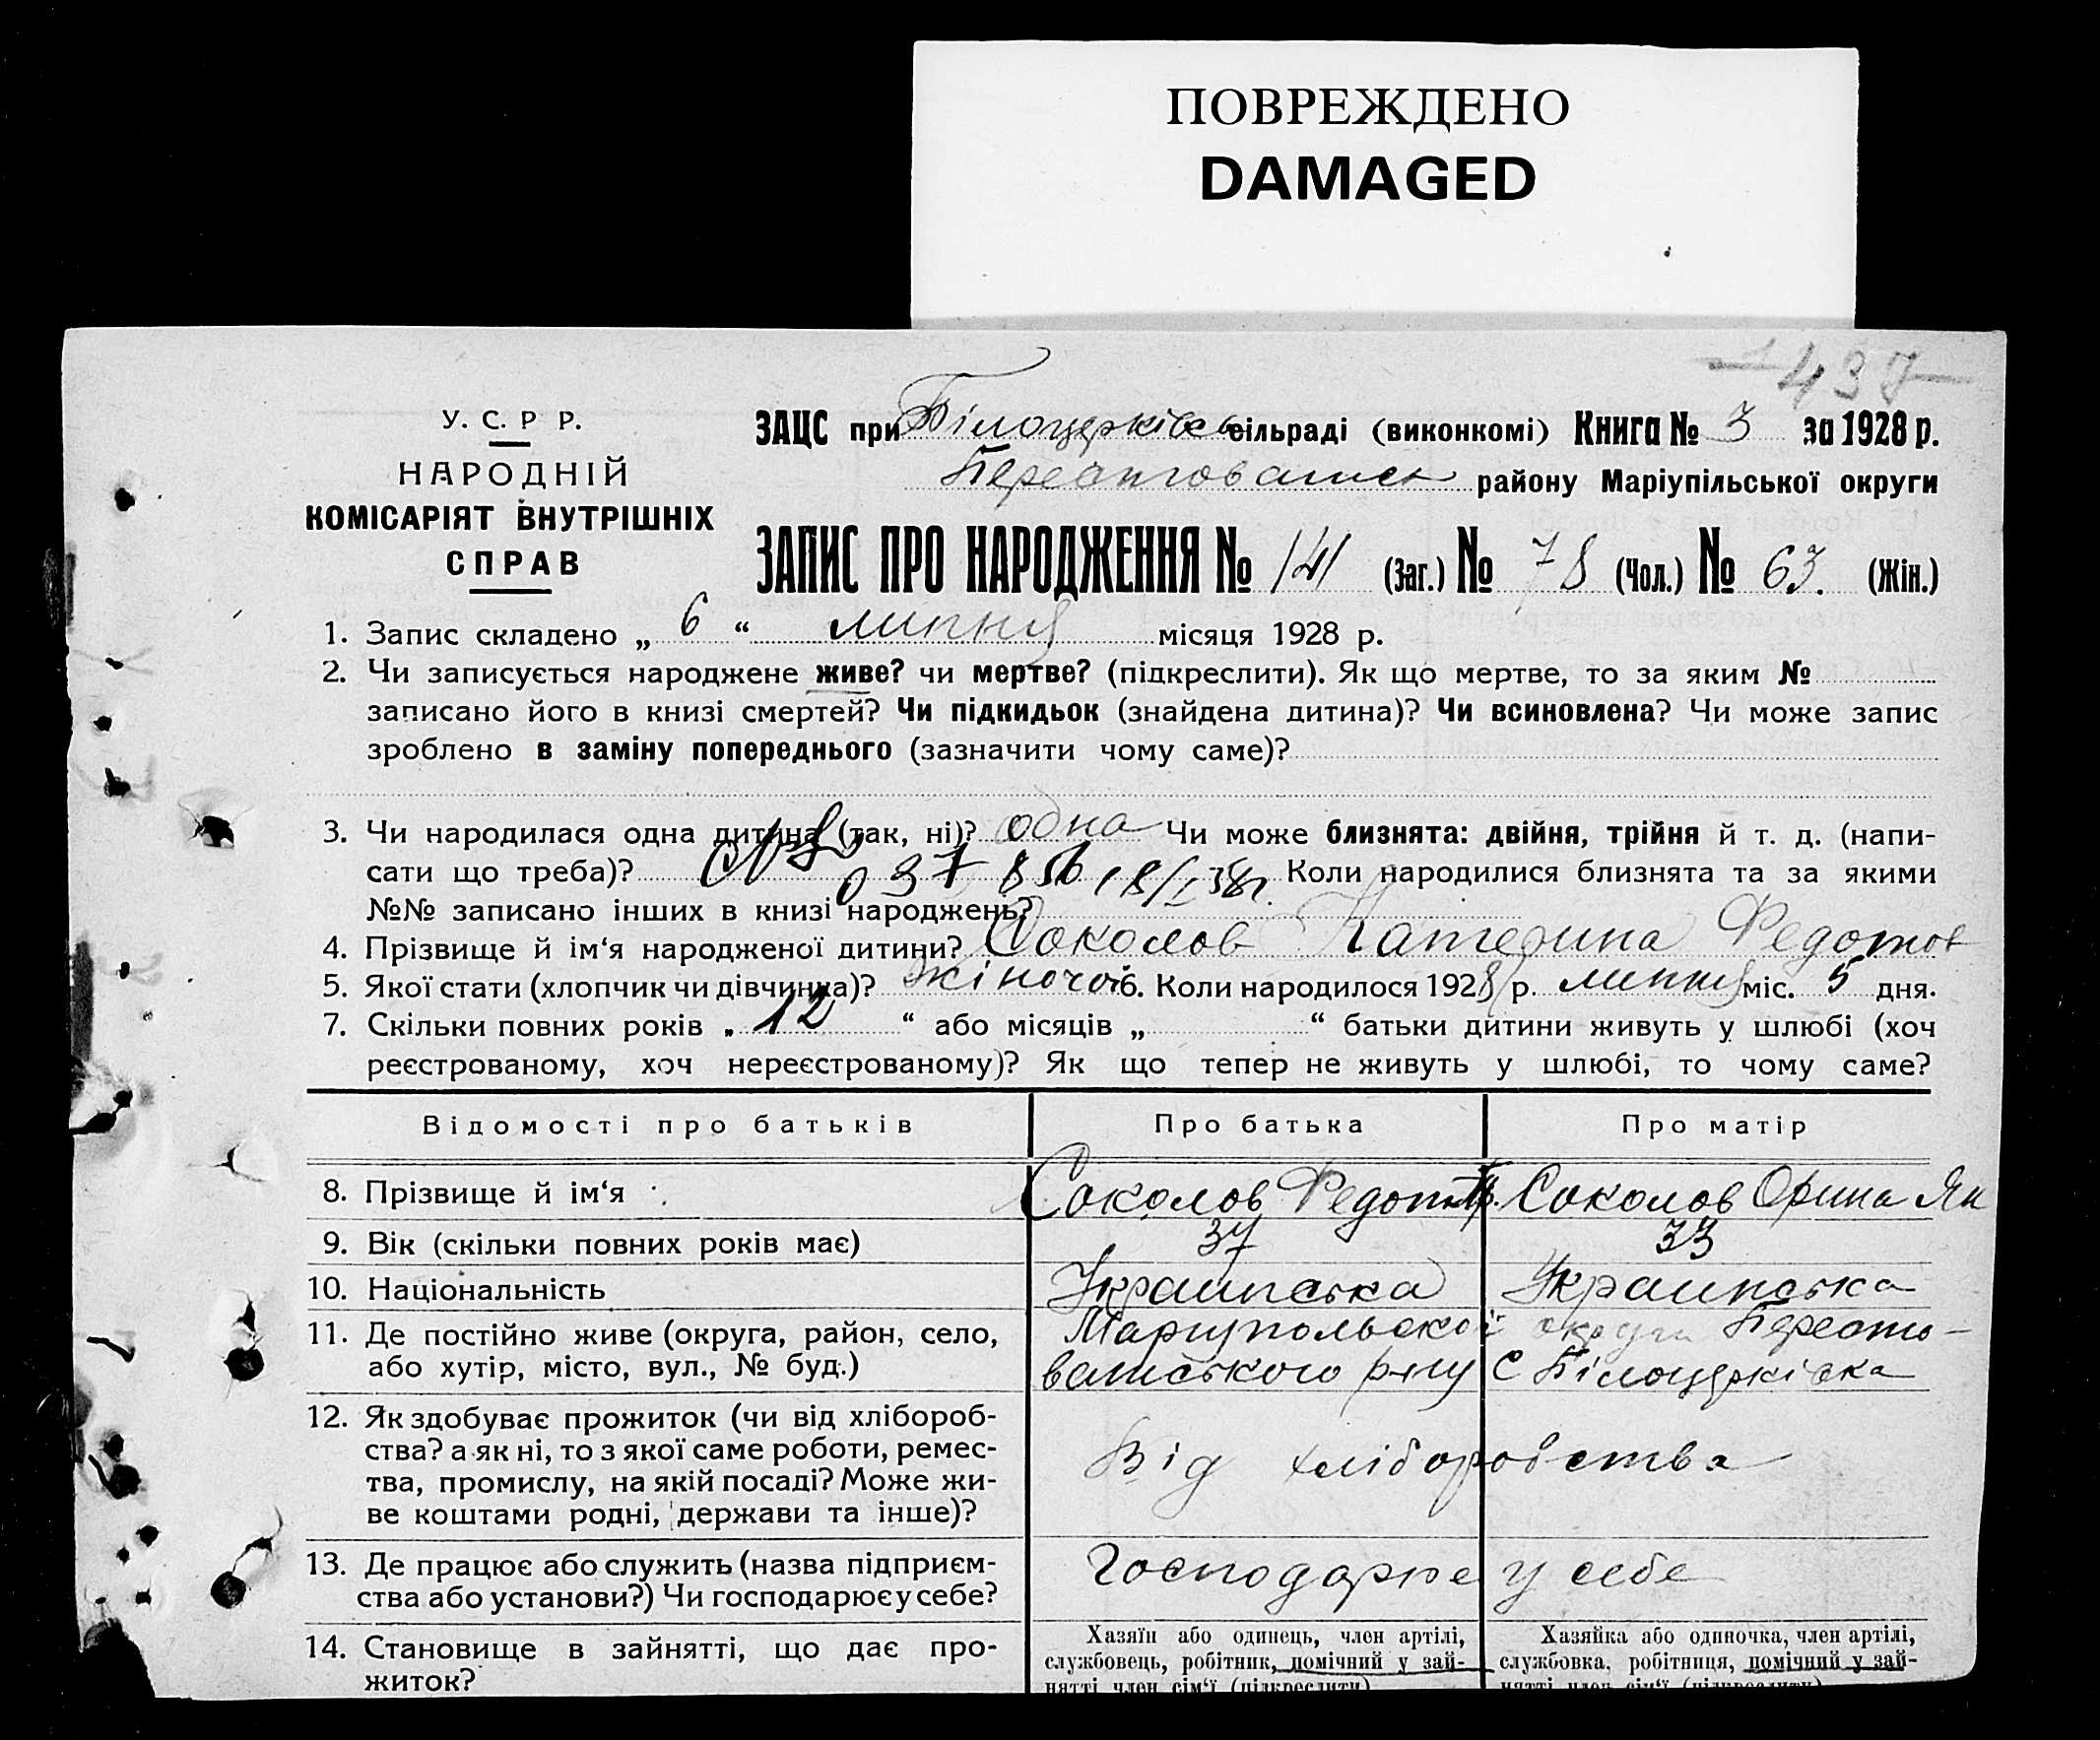 ПОВРЕЖДЕНО
DAMAGED
437
У. С. Р Р.
НАРОДНІЙ
КОМІСАРІЯТ ВНУТРІШНІХ
СПРАВ
ЗАЦС при Білоцерківск сільраді (виконкомі) Книга № 3 за 1928 р.
району Маріупільської округи
ЗАПИС ПРО НАРОДЖЕННЯ № 141 (Заг.) № 78 (Чол.) № 63. (Жін.)
1. Запис складено „ 6 “ липня місяця 1928 р.
2. Чи записується народжене живе? чи мертве? (підкреслити). Як що мертве, то за яким №
записано його в книзі смертей? Чи підкидьок (знайдена дитина)? Чи всиновлена? Чи може запис
зроблено в заміну попереднього (зазначити чому саме)?
3. Чи народилася одна дитина (так, ні)? одна Чи може близнята: двійня, трійня й т. д. (напи-
сати що треба)? Коли народилися близнята та за якими
№№ записано інших в книзі народжень?
4. Прізвище й ім‘я народженої дитини? Соколов Катерина Федотов
5. Якої стати (хлопчик чи дівчинка)? жіночоі 6. Коли народилося 1928 р. липня міс. 5 дня.
7. Скільки повних років „ 12 “ або місяців „ “ батьки дитини живуть у шлюбі (хоч
реєстрованому, хоч нереєстрованому)? Як що тепер не живуть у шлюбі, то чому саме?
Відомості про батьків Про батька Про матір
8. Прізвище й ім‘я Соколов Федот Соколов Орина Як
9. Вік (скільки повних років має) 37 33
10. Національність Украинська Украинська
11. Де постійно живе (округа, район, село, округи Бересто-
або хутір, місто, вул., № буд.) ватського р-ну С Білоцерківка
12. Як здобуває прожиток (чи від хлібороб-
ства? а як ні, то з якої саме роботи, ремес- Від хліборобства
тва, промислу, на якій посаді? Може жи-
ве коштами родні, держави та інше)?
13. Де працює або служить (назва підприєм- Господарює у себе
ства або установи?) Чи господарює у себе?
14. Становище в зайнятті, що дає про- Хазяїн або одинець, член артілі, Хазяйка або одиночка, член артілі,
житок? службовець, робітник, помічний у зай- службовка, робітниця, помічний у зай-
нятті член сім‘ї (підкреслити) нятті член сім‘ї (підкреслити)